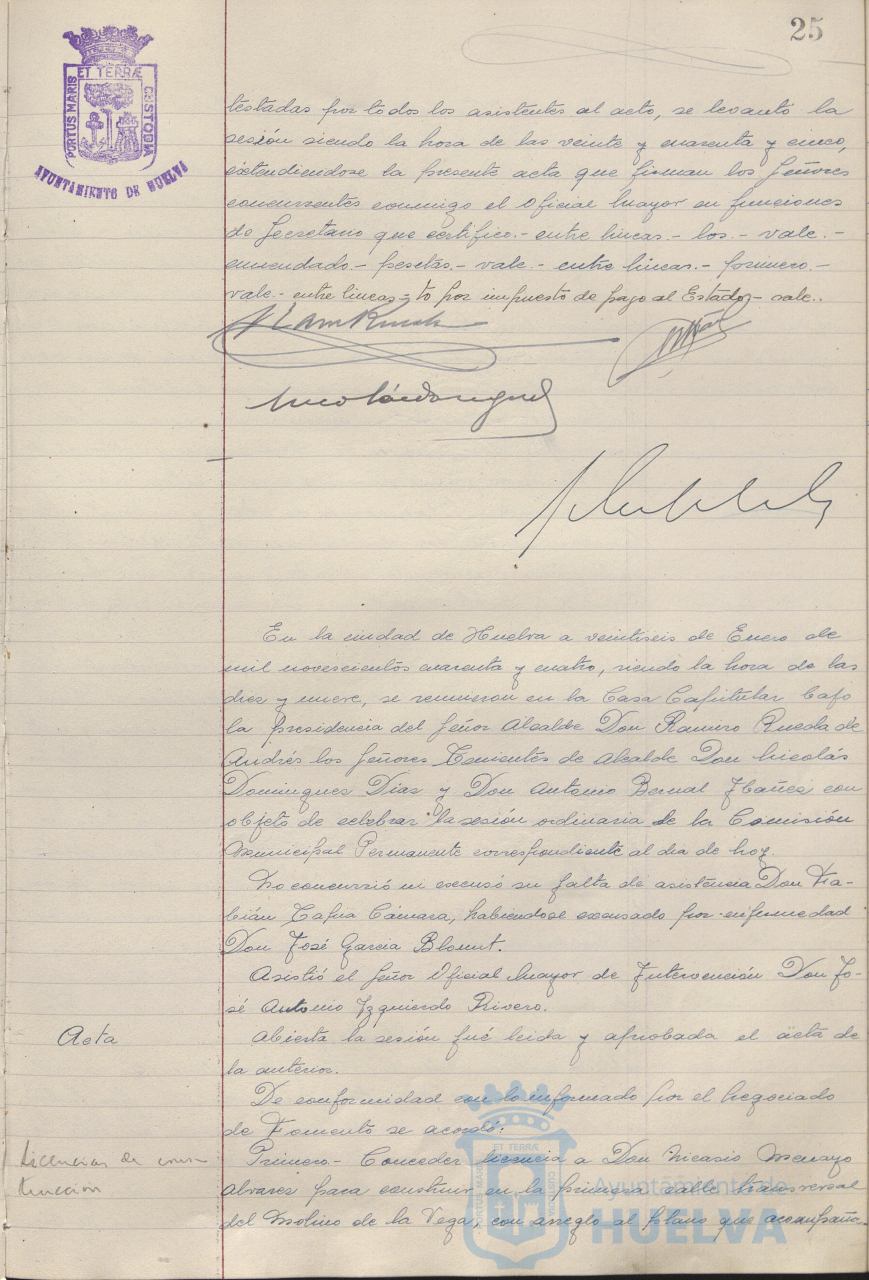 25
PORTUS MARIS ET TERRÆ CUSTODIA
AYUNTAMIENTO DE HUELVA
testadas por todos los asistentes al acto, se levantó la
sesión siendo la hora de las veinte y cuarenta y cinco,
extendiendose la presente acta que firman los Señores
concurrentes conmigo el Oficial Mayor en funciones
de Secretario que certifico.- entre lineas.- los.- vale.-
enmendado.- pesetas.- vale.- entre lineas.- primero.-
vale.- entre lineas = to por impuesto de pago al Estado.- vale..
En la ciudad de Huelva a veintiseis de Enero de
mil novescientos cuarenta y cuatro, siendo la hora de las
dies y nueve, se reunieron en la Casa Capitular bajo
la presidencia del Señor Alcalde Don Ramiro Rueda de
Andrés los Señores Tenientes de Alcalde Don Nicolás
Domingues Dias y Don Antonio Bernal Ibañes con
objeto de celebrar la sesión ordinaria de la Comisión
Municipal Permanente correspondiente al dia de hoy.
No concurrió ni escusó su falta de asistencia Don Fa-
bián Tapia Cámara, habiendose excusado por enfermedad
Don José Garcia Blomt.
Asistió el Señor Oficial Mayor de Intervención Don Jo-
sé Antonio Izquierdo Rivero.
Acta
Abierta la sesión fué leida y aprobada el acta de
la anterior.
De conformidad con lo informado por el Negociado
de Fomento se acordó:
Licencias de cons-
trucción
Primero.- Conceder licencia a Don Nicasio Menayo
Alvares para construir en la primera calle transversal
del Molino de la Vega, con arreglo al plano que acompaña.
Ayuntamiento de
HUELVA